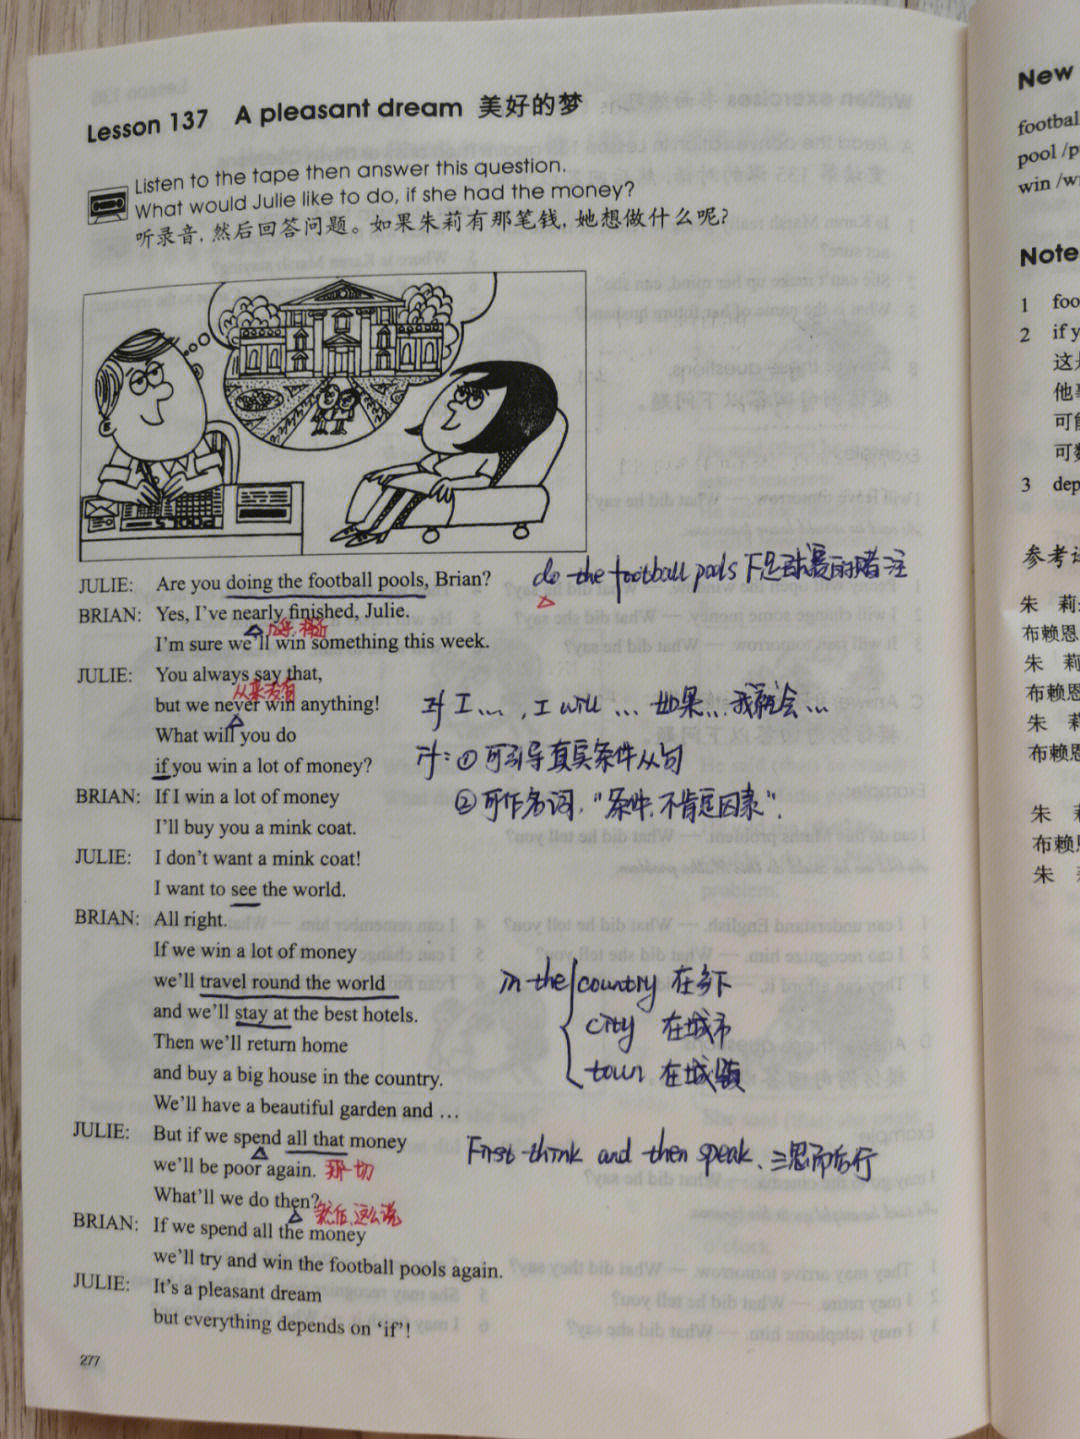 Lesson 137 A pleasant dream 美好的梦
Listen to the tape then answer this question.
What would Julie like to do, if she had the money?
听录音, 然后回答问题。如果朱莉有那笔钱, 她想做什么呢?
POOLS
JULIE: Are you doing the football pools, Brian?
do the football pools 下足球赛的赌注
BRIAN: Yes, I've nearly finished, Julie.
I'm sure we'll win something this week.
JULIE: You always say that,
从来没有
but we never win anything!
if I..., I will ... 如果...我就会...
What will you do
if: ① 可引导真实条件从句
if you win a lot of money?
BRIAN: If I win a lot of money
② 可作名词, "条件, 不肯定因素".
I'll buy you a mink coat.
JULIE: I don't want a mink coat!
I want to see the world.
BRIAN: All right.
If we win a lot of money
we'll travel round the world
in the country 在乡下
and we'll stay at the best hotels.
city 在城市
Then we'll return home
and buy a big house in the country.
town 在城镇
We'll have a beautiful garden and …
JULIE: But if we spend all that money
First think and then speak. 三思而后行
we'll be poor again. 那一切
What'll we do then?
然后, 这么说
BRIAN: If we spend all the money
we'll try and win the football pools again.
JULIE: It's a pleasant dream
but everything depends on 'if'!
277
New
footbal
pool /p
win /w
Note
1 foo
2 if y
这是
可能
可数
3 dep
参考译
朱 莉
布赖恩
朱 莉
布赖恩
朱 莉
布赖恩
朱
布赖恩
朱